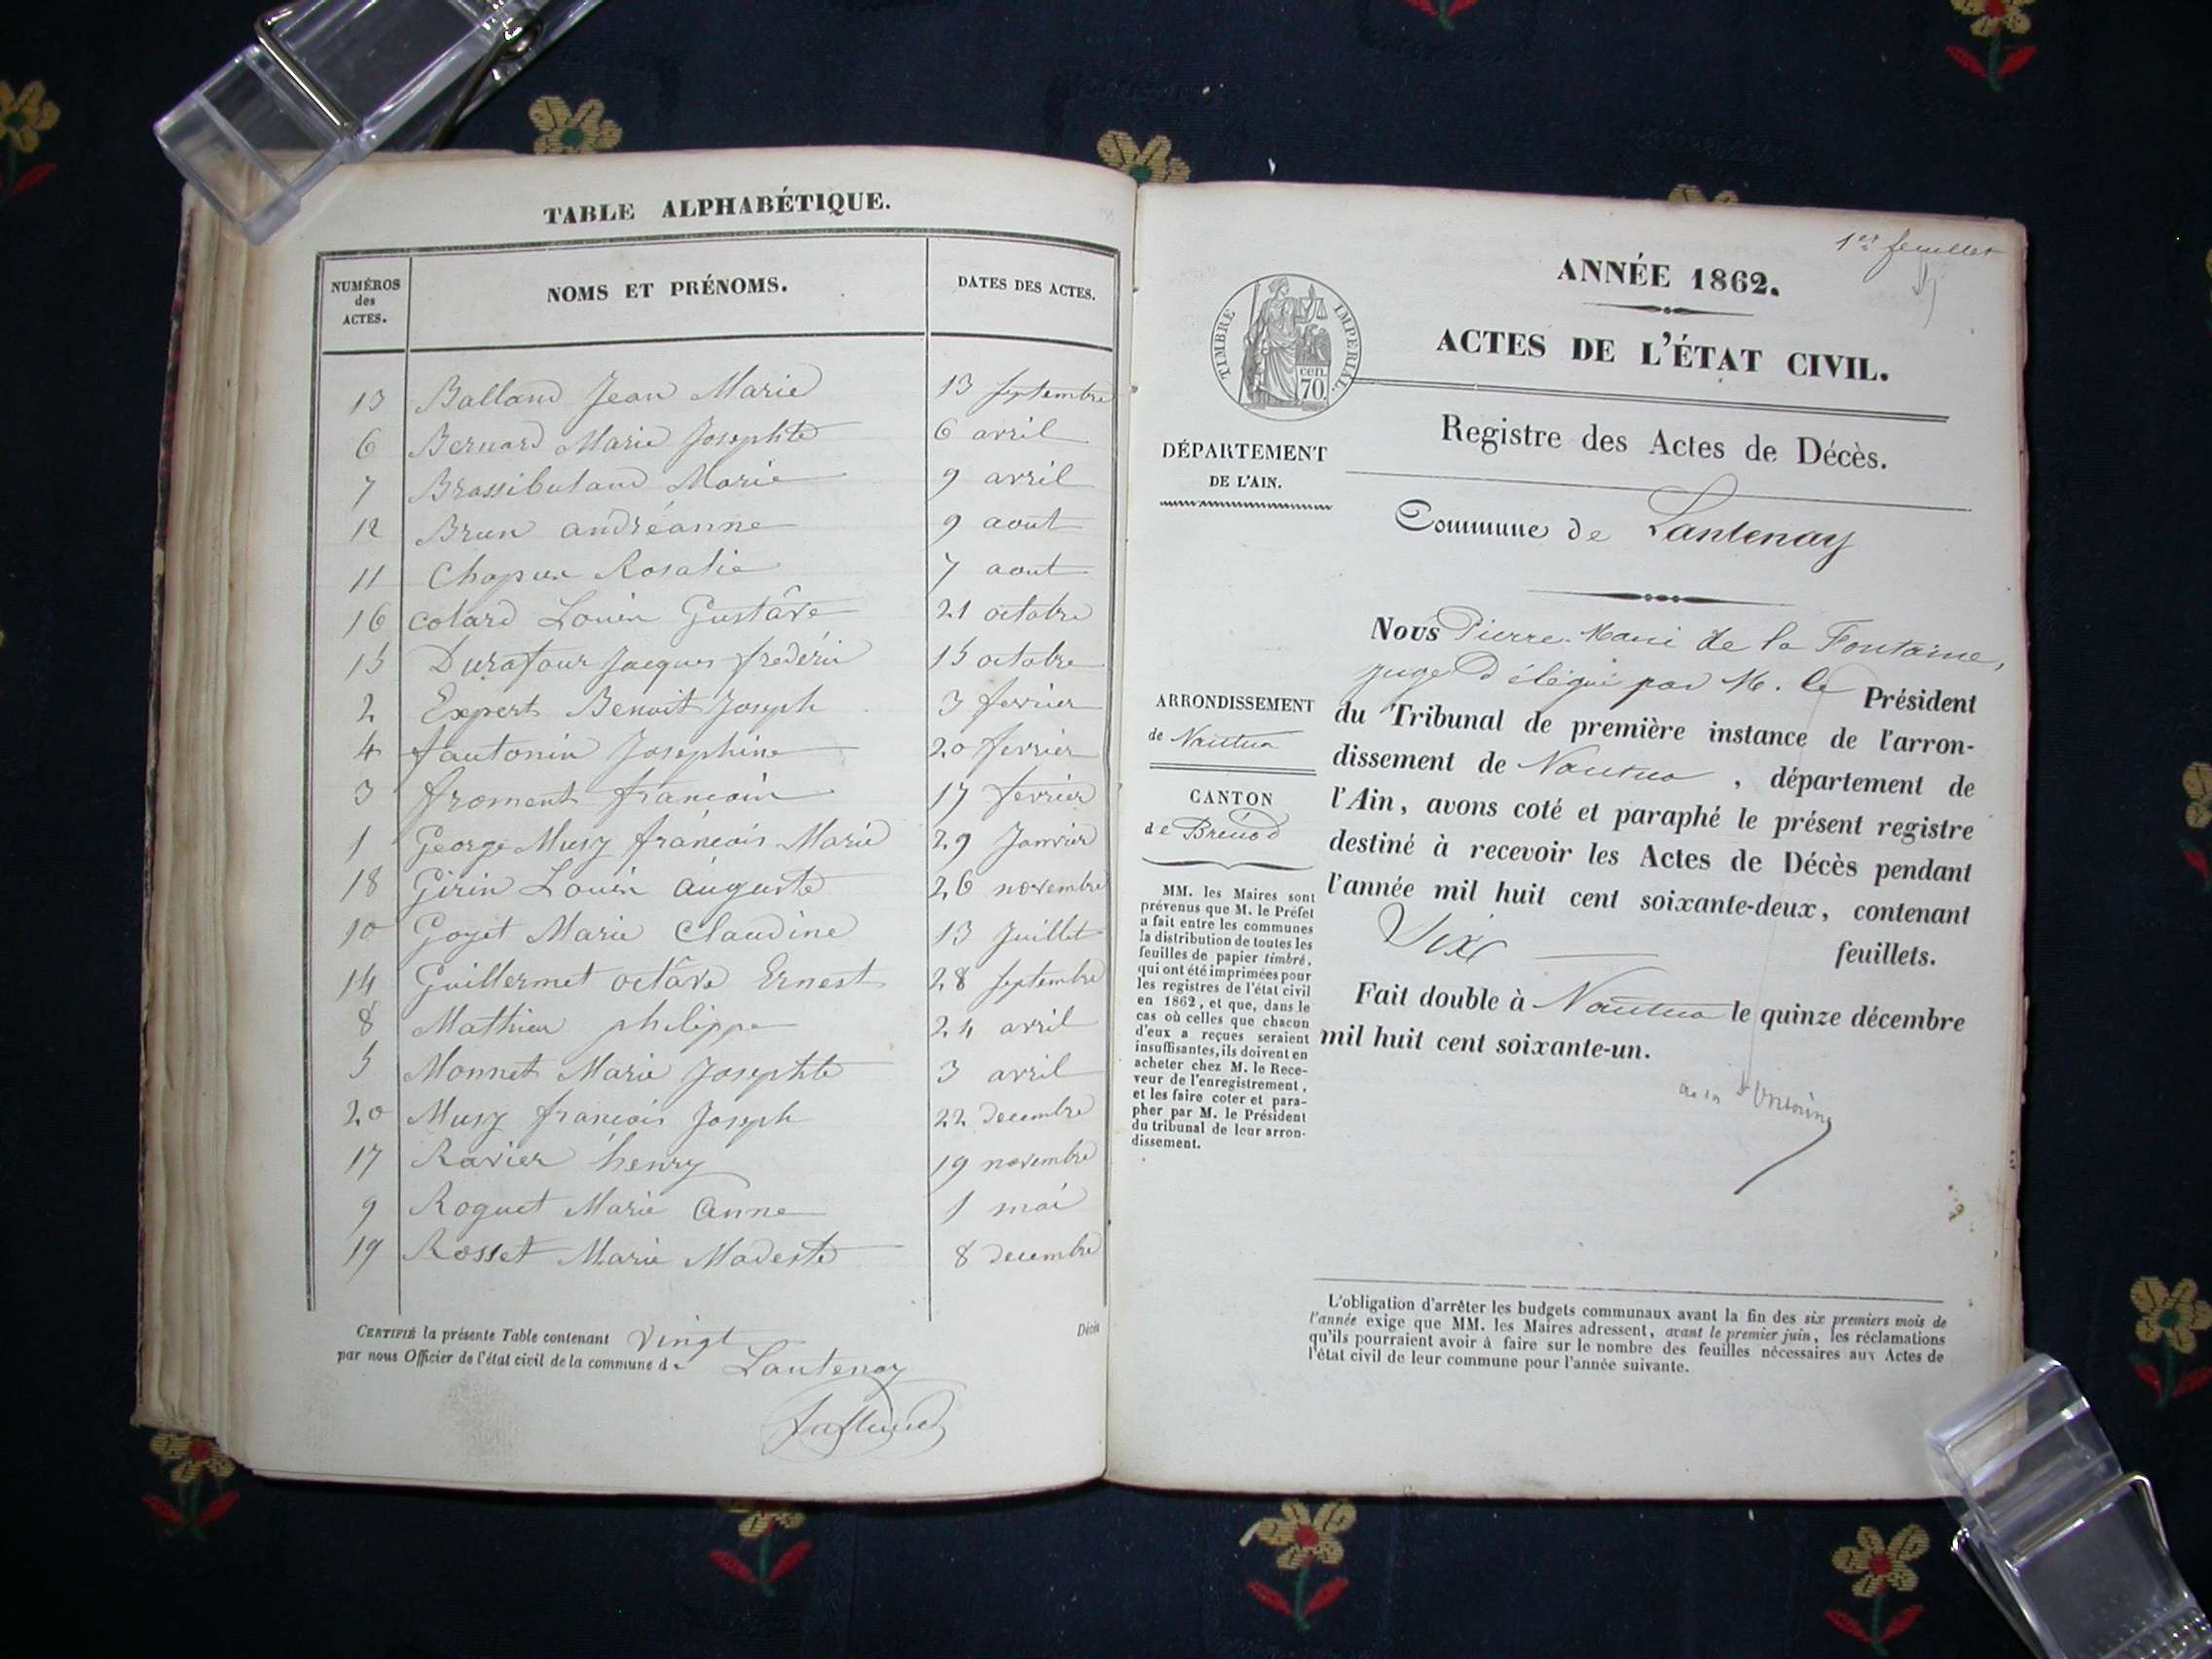 TABLE ALPHABÉTIQUE.
NUMÉROS des ACTES. NOMS ET PRÉNOMS. DATES DES ACTES.
13 Balland Jean Marie 13 septembre
6 Bernard Marie Josephte 6 avril
7 Brassibuland Marie 9 avril
12 Brun andréanne 9 aout
11 Chapuu Rosalie 7 aout
16 colard Louis Gustâve 21 octobre
15 Durafour Jacques frédéric 15 octobre
2 Expert Benoit Joseph 3 fevrier
4 fautonin Josephine 20 fevrier
3 froment francois 17 fevrier
1 George Musy francois Marie 29 Janvier
18 Girin Louis auguste 26 novembre
10 Goyet Marie Claudine 13 Juillet
14 Guillermet octâve Ernest 28 septembre
8 Mathieu philippe 24 avril
5 Monnet Marie Josephte 3 avril
20 Musy francois Joseph 22 decembre
17 Ravier henry 19 novembre
9 Roguet Marie Anne 1 mai
19 Rosset Marie Modeste 8 decembre
CERTIFIÉ la présente Table contenant Vingt Décès
par nous Officier de l'état civil de la commune de Lantenay
1er feuillet
ANNÉE 1862.
ACTES DE L'ÉTAT CIVIL.
TIMBRE IMPÉRIAL.
cen.
70.
Registre des Actes de Décès.
DÉPARTEMENT
DE L'AIN.
Commune de Lantenay
ARRONDISSEMENT
de Nantua
CANTON
de Brénod
MM. les Maires sont
prévenus que M. le Préfet
a fait entre les communes
la distribution de toutes les
feuilles de papier timbré,
qui ont été imprimées pour
les registres de l'état civil
en 1862, et que, dans le
cas où celles que chacun
d'eux a reçues seraient
insuffisantes, ils doivent en
acheter chez M. le Rece-
veur de l'enregistrement,
et les faire coter et para-
pher par M. le Président
du tribunal de leur arron-
dissement.
Nous Pierre Marie de la Fontaine,
juge Délégué par M. le Président
du Tribunal de première instance de l'arron-
dissement de Nantua, département de
l'Ain, avons coté et paraphé le présent registre
destiné à recevoir les Actes de Décès pendant
l'année mil huit cent soixante-deux, contenant
Six feuillets.
Fait double à Nantua le quinze décembre
mil huit cent soixante-un.
L'obligation d'arrêter les budgets communaux avant la fin des six premiers mois de
l'année exige que MM. les Maires adressent, avant le premier juin, les réclamations
qu'ils pourraient avoir à faire sur le nombre des feuilles nécessaires aux Actes de
l'état civil de leur commune pour l'année suivante.